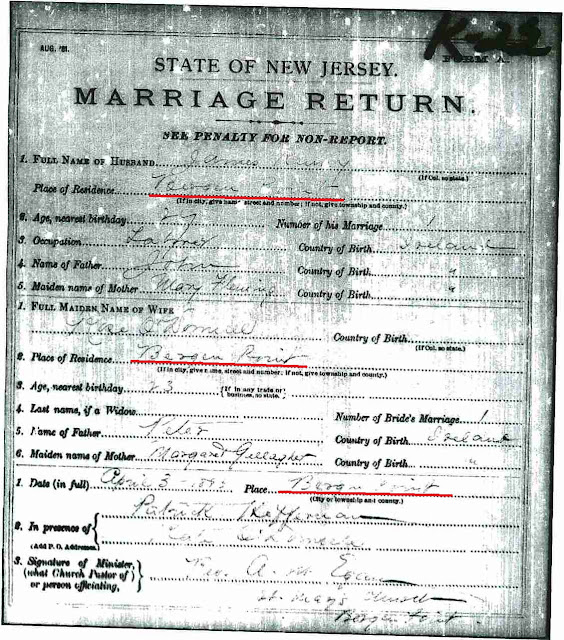 K-22
AUG. '81.
FORM A.
STATE OF NEW JERSEY.
MARRIAGE RETURN.
SEE PENALTY FOR NON-REPORT.
1. FULL NAME OF HUSBAND James
(If Col. so state.)
Place of Residence Bergen Point
(If in city, give name, street and number; if not, give township and county.)
2. Age, nearest birthday 27 Number of his Marriage 1
3. Occupation Labor Country of Birth Ireland
4. Name of Father John Country of Birth "
5. Maiden name of Mother Mary Fleming Country of Birth "
1. FULL MAIDEN NAME OF WIFE
Rose O'Donnell Country of Birth
(If Col. so state.)
2. Place of Residence Bergen Point
(If in city, give name, street and number; if not, give township and county.)
3. Age, nearest birthday 23 {If in any trade or business, so state.}
4. Last name, if a Widow Number of Bride's Marriage 1
5. Name of Father Peter Country of Birth Ireland
6. Maiden name of Mother Margaret Gallagher Country of Birth "
1. Date (in full) April 3 Place Bergen Point
(City or township and county.)
Patrick Heffernan
2. In presence of O'Donnell
(Add P. O. Address.)
3. Signature of Minister, (what Church Pastor of) or person officiating, Rev. A. M. Egan
St. Mary's Church
Bergen Point.